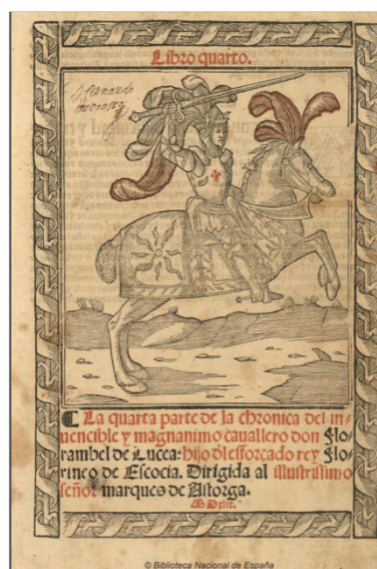 Libro quarto.
fernando
¶ La quarta parte de la chronica del in-
uencible y magnanimo cauallero don Flo-
rambel de Lucea: hijo dl esforçado rey Flo-
rineo de Escocia. Dirigida al illustrissimo
señor marques de Astorga.
© Biblioteca Nacional de España